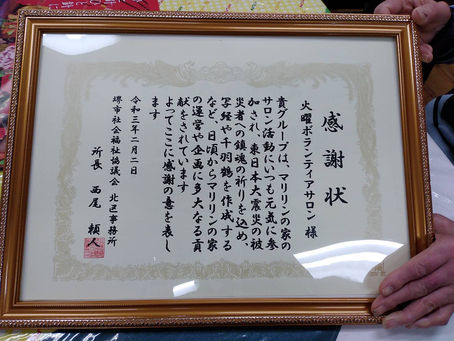 感謝状
火曜ボランティアサロン 様
貴グループは、マリリンの家の
サロン活動にいつも元気に参
加され、東日本大震災の被
災者への鎮魂の祈りを込め、
写経や千羽鶴を作成する
など、日頃からマリリンの家
の運営や企画に多大なる貢
献をされています
よってここに感謝の意を表し
ます
令和三年二月二日
堺市社会福祉協議会 北区事務所
所長 西尾 頼人